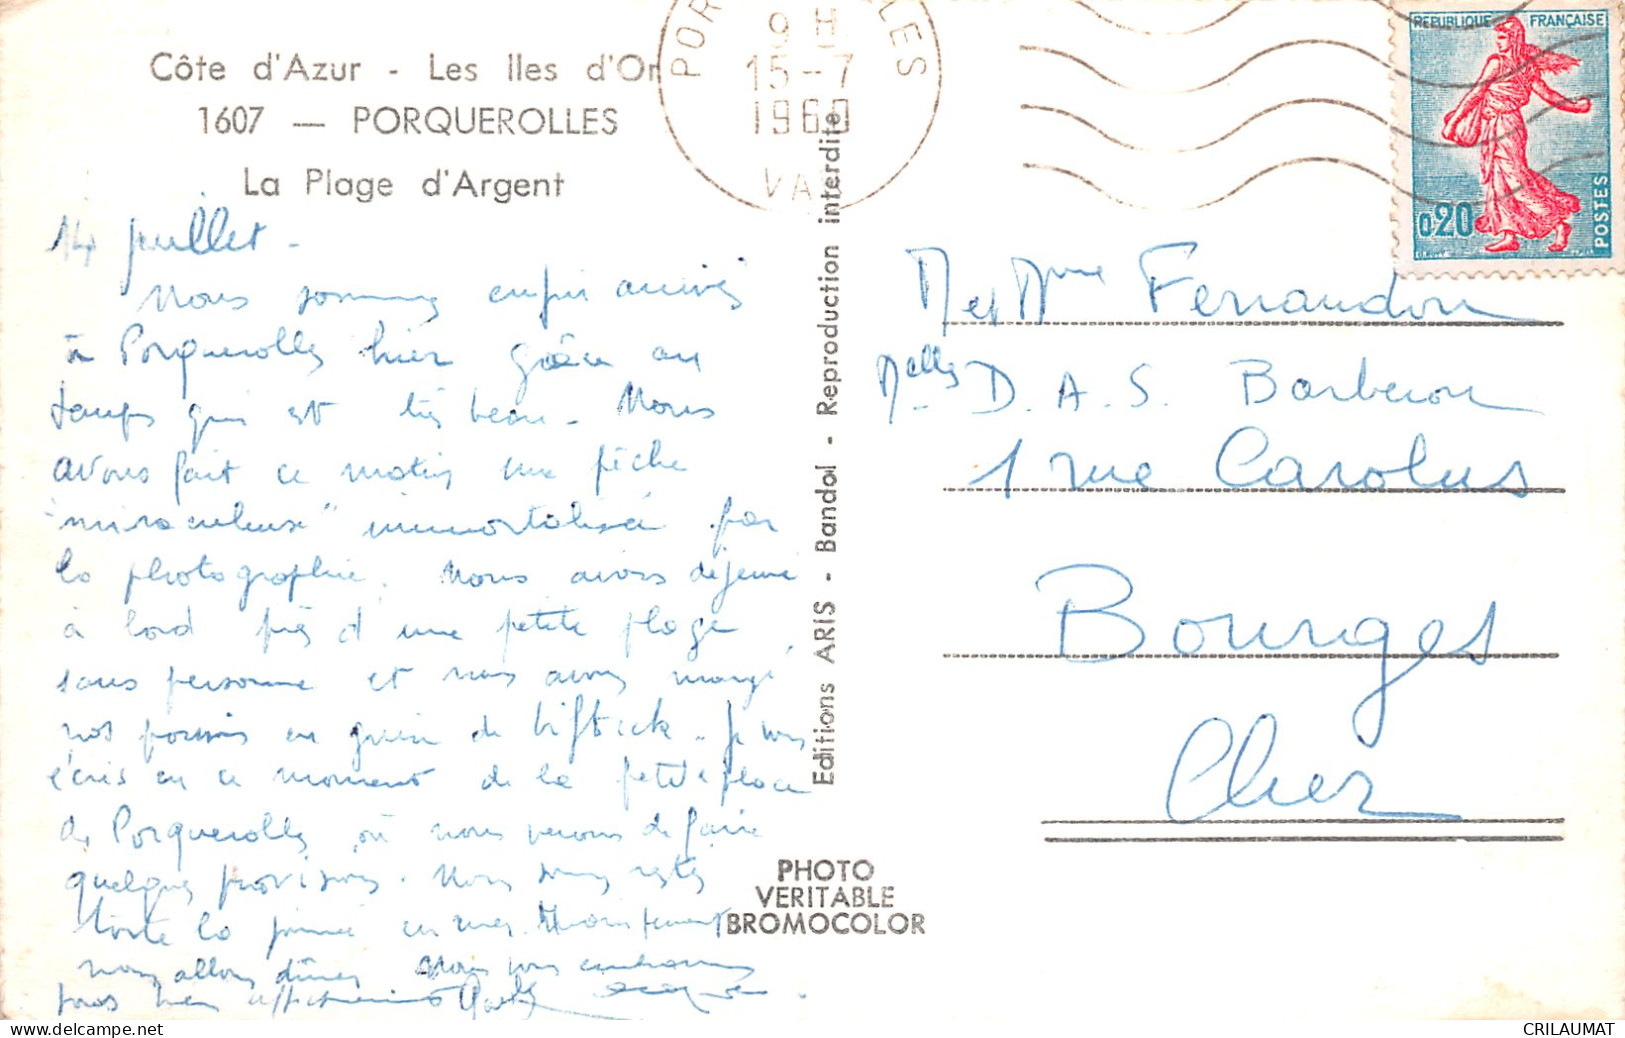 Côte d'Azur - Les Iles d'Or
1607 — PORQUEROLLES
La Plage d'Argent
14 juillet -
Nous sommes enfin arrivés
à Porquerolles hier grâce au
temps qui est très beau. Nous
avons fait ce matin une pêche
"miraculeuse" immortalisée par
la photographie. Nous avons déjeuné
à bord près d'une petite plage
sans personne et nous avons mangé
nos poissons en guise de bifteck. Je vous
écris en ce moment de la petite place
de Porquerolles où nous venons de faire
quelques provisions. Nous sommes restés
toute la journée en mer. Maintenant
nous allons dîner. Nous vous embrassons
tous bien affectueusement
9 H
15-7
1960
VAR
Editions ARIS - Bandol - Reproduction interdite
PHOTO
VERITABLE
BROMOCOLOR
REPUBLIQUE FRANÇAISE
0,20
POSTES
M et Mme Ferrandon
Melles D. A. S. Barberon
1 rue Carolus
Bourges
Cher
CRILAUMAT